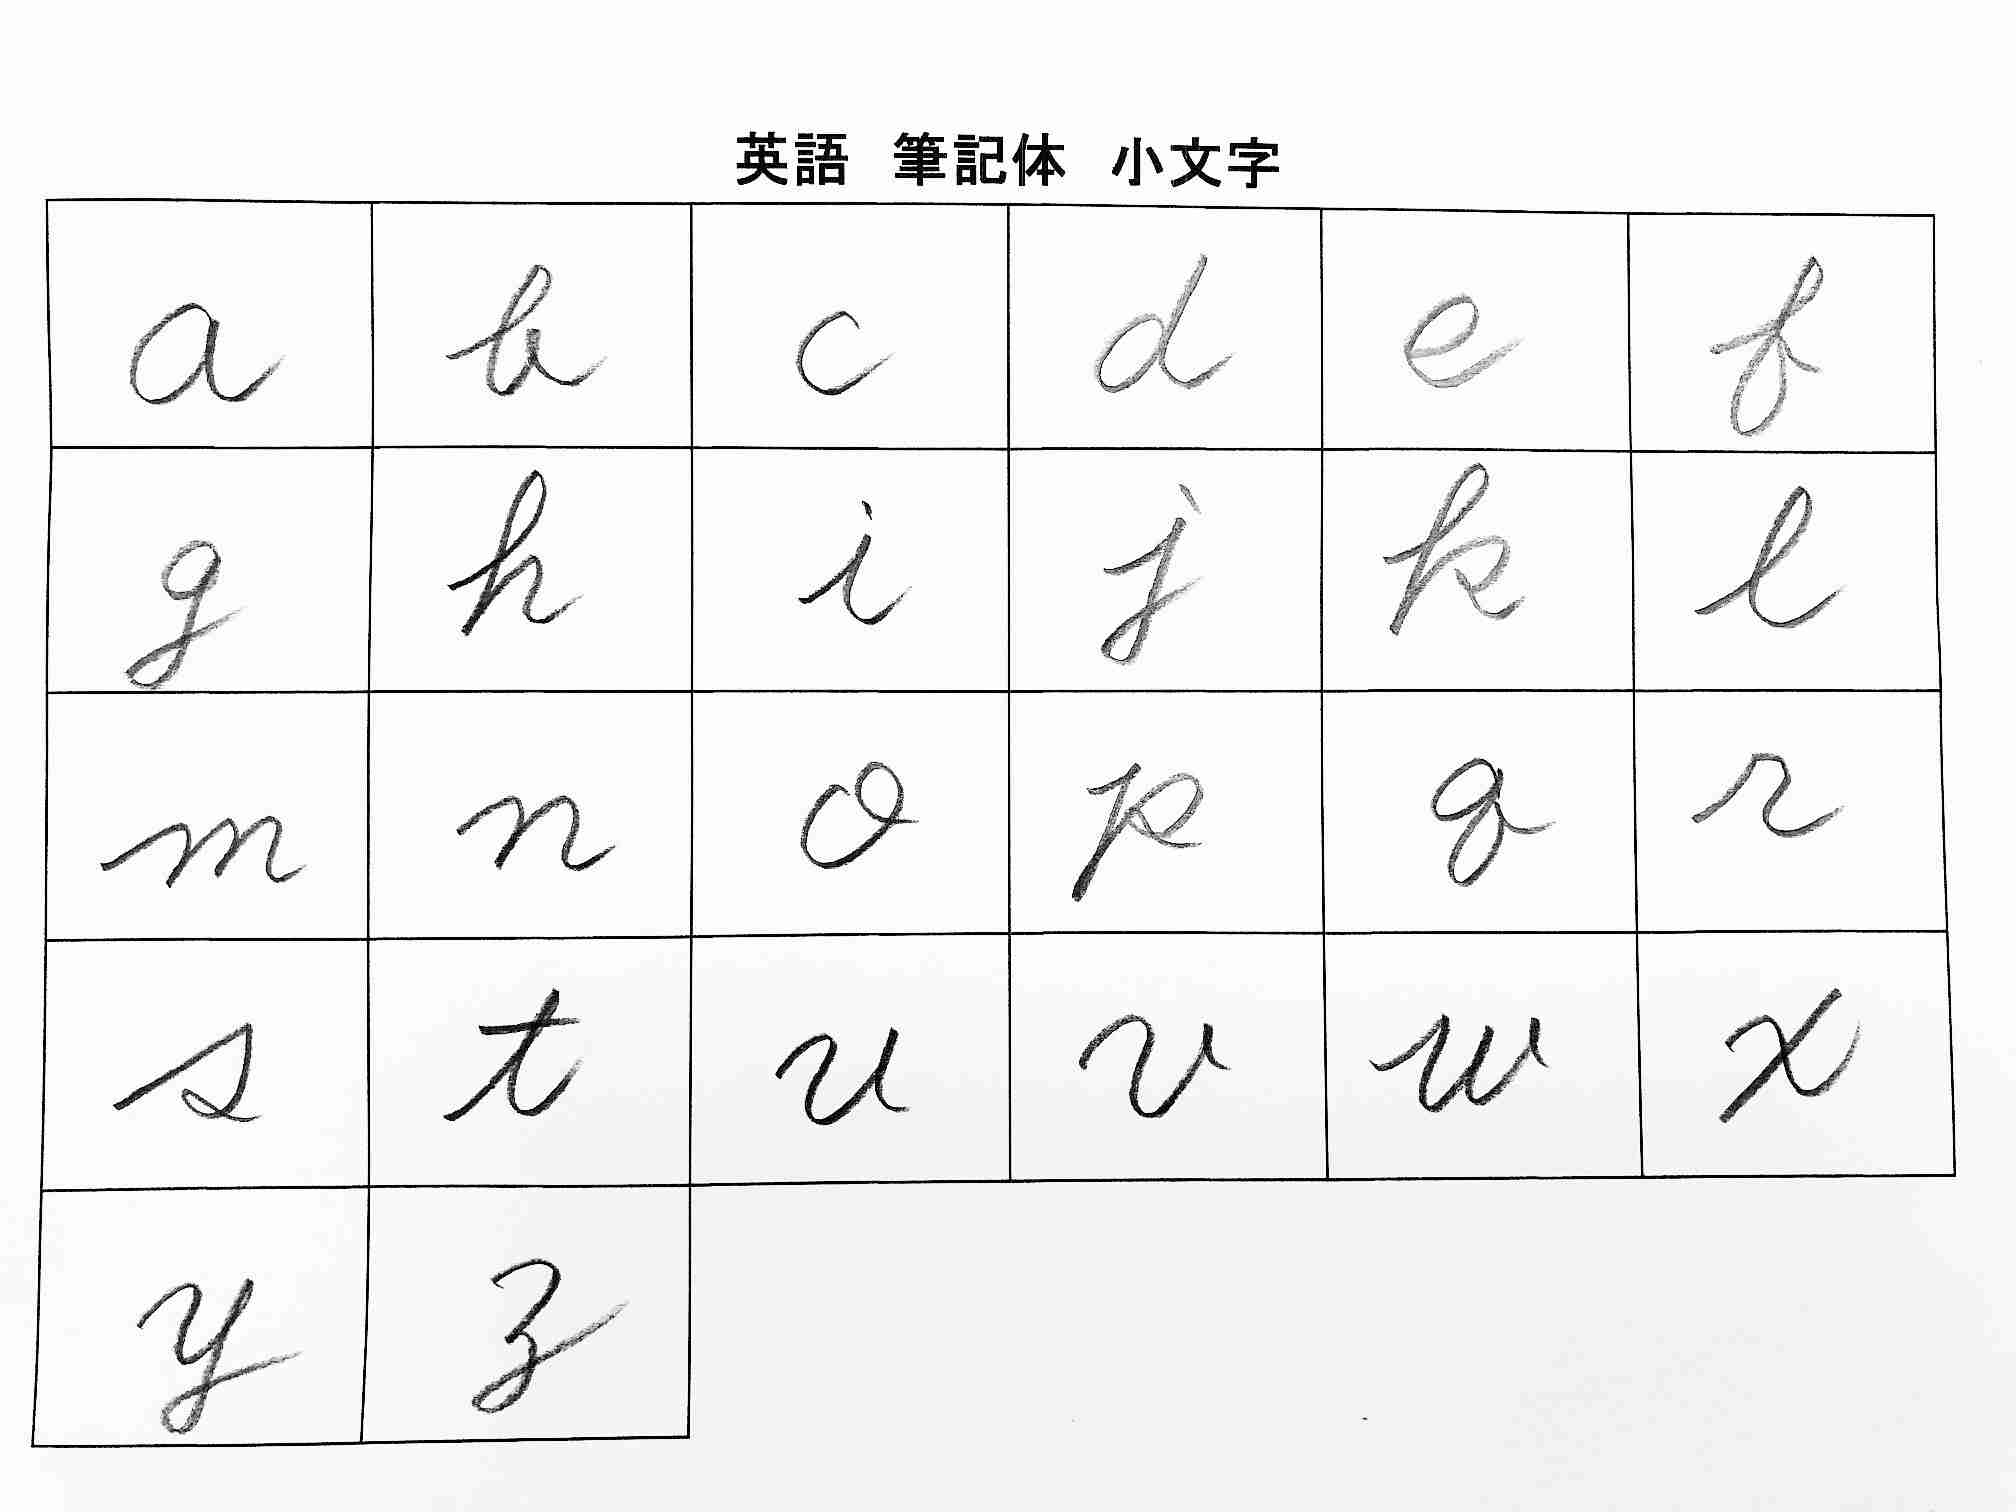 英語 筆記体 小文字
a b c d e f
g h i j k l
m n o p q r
s t u v w x
y z